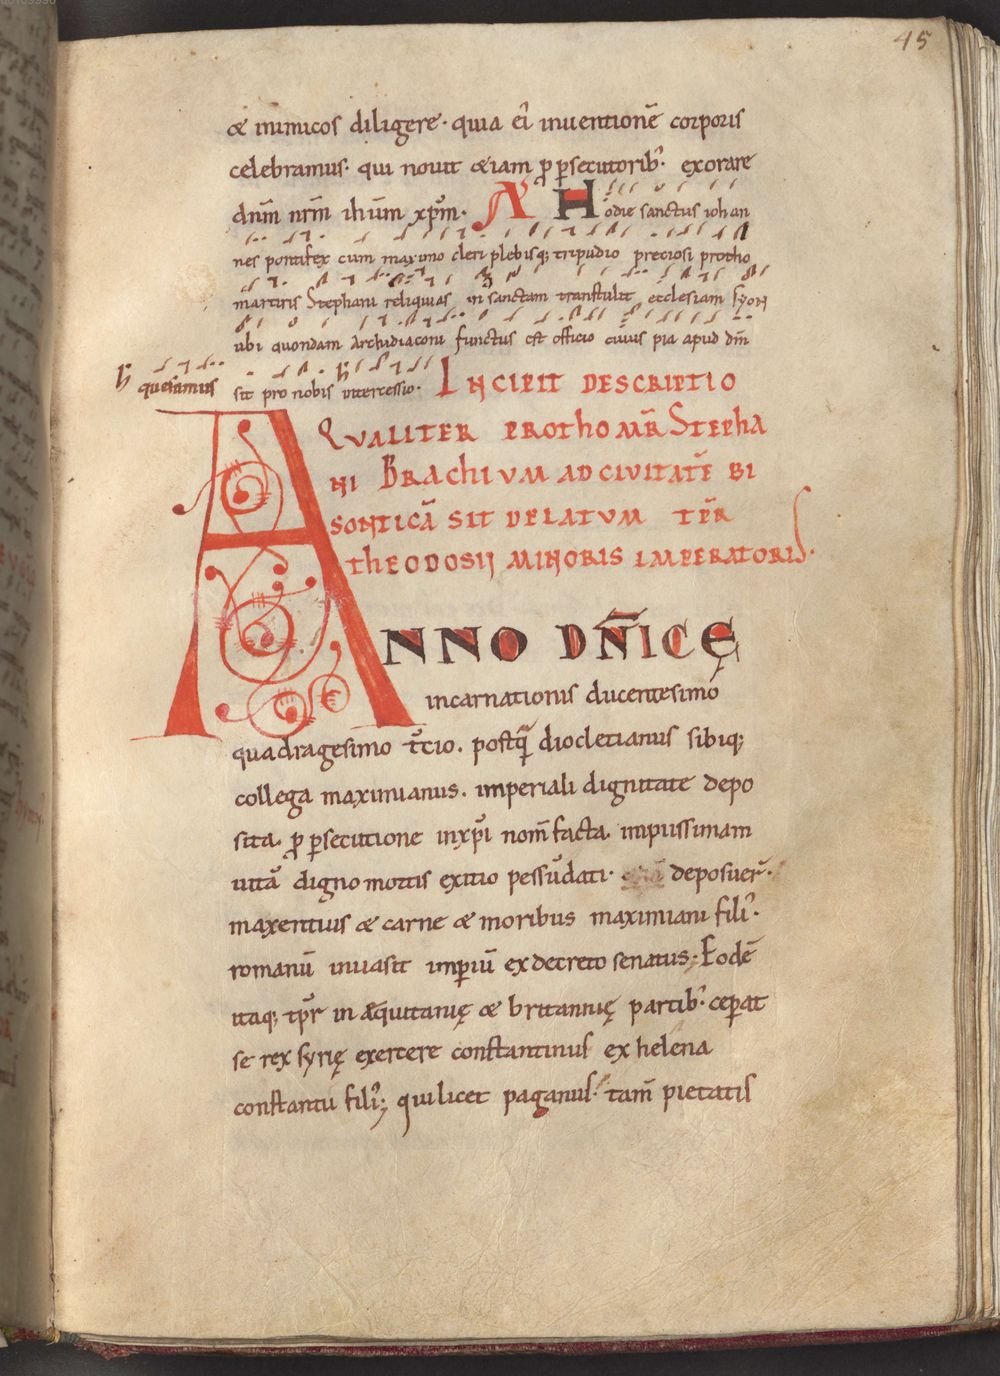 45
& inimicos diligere · quia ei᷒ inuentionē corporis
celebramus · qui nouit &iam ꝓ ꝑsecutorib᷒ · exorare
dnm̄ nrm̄ ihūm xp̄m · A Hodie sanctus iohan
nes pontifex cum maximo cleri plebisq; tripudio preciosi protho
martiris Stephani reliquias in sanctam transtulit ecclesiam syon
ubi quondam archidiaconi functus est officio cuius pia apud dn̄m
quesumus sit pro nobis intercessio · INCIPIT DESCRIPTIO
QUALITER PROTHOMR̄ STEPHA
NI BRACHIUM AD CIVITATĒ BI
SONTICĀ SIT DELATUM TĒR
THEODOSII MINORIS IMPERATORIS ·
ANNO DN̄ICĘ
incarnationis ducentesimo
quadragesimo t̄cio . postq̄ diocletianus sibiq;
collega maximianus . imperiali dignitate depo
sita . ꝓ ꝑsecutione inxp̄i nom̄ facta . impiissimam
uitā digno mortis exitio pessūdati · deposuer̄ ·
maxentius & carne & moribus maximiani fili᷒ ·
romanū inuasit imꝑiū ex decreto senatus · Eodē
itaq; tp̄r in aquitanię & britannię partib᷒ · ceꝑat
se rex syrię exercere constantinus ex helena
constantii fili᷒; qui licet paganus · tam̄ pietatis